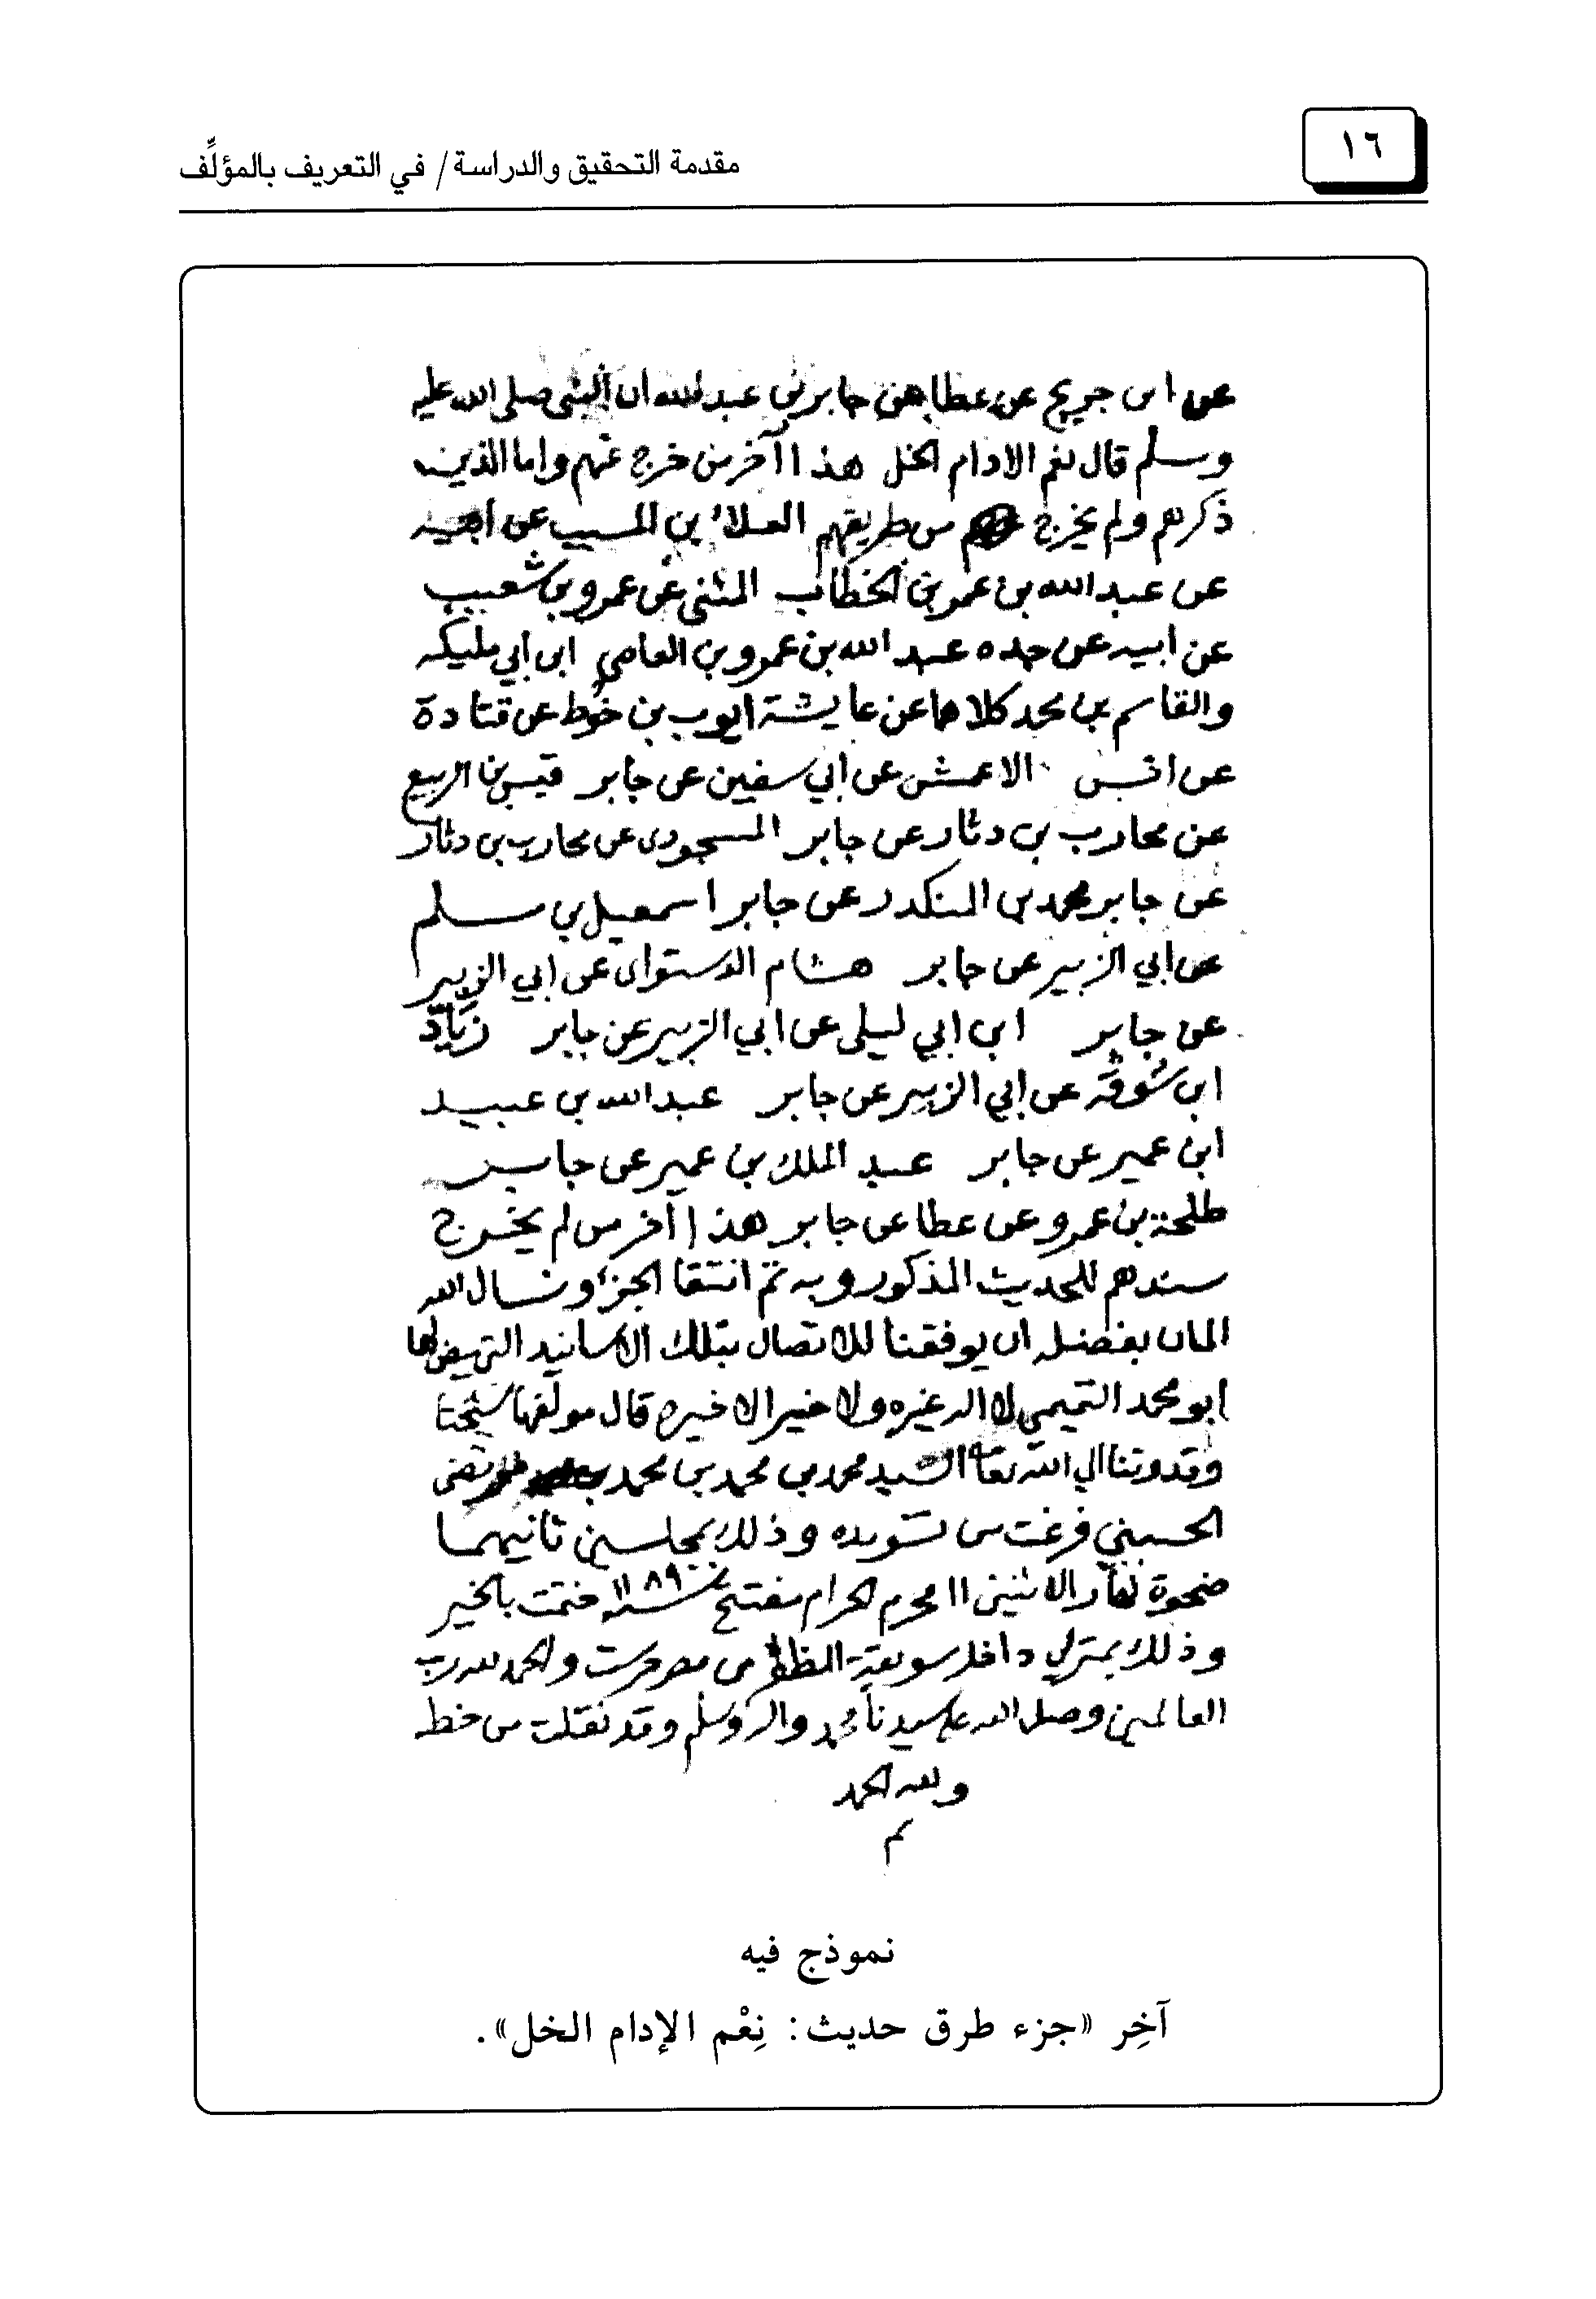 ١٦
مقدمة التحقيق والدراسة / في التعريف بالمؤلِّف
عن ابن جريج عن عطا عن جابر بن عبد الله ان النبي صلى الله عليه
وسلم قال نعم الادام الخل هذا آخر من خرج عنهم واما الذين
ذكرهم ولم يخرج من طريقهم العلاء بن المسيب عن
عن عبد الله بن عمر بن الخطاب المثنى عن عمرو بن شعيب
عن ابيه عن جده عبد الله بن عمرو بن العاصي ابن ابي مليكه
والقاسم بن محمد كلاهما عن عايشة ايوب بن خُوط عن قتادة
عن انس الاعمش عن ابي سفين عن جابر قيس بن الربيع
عن محارب بن دثار عن جابر عن محارب بن دثار
عن جابر محمد بن المنكدر عن جابر اسمعيل بن مسلم
عن ابي الزبير عن جابر هشام الدستواى عن ابي الزبير
عن جابر ابن ابي ليلى عن ابي الزبير عن جابر زياد
ابن سُوقه عن ابي الزبير عن جابر عبد الله بن عبيد
ابن عمير عن جابر عبد الملك بن عمير عن جابر
طلحة بن عمرو عن عطا عن جابر هذا آخر من لم يخرج
سندهم للحديث المذكور وبه تم انتقا الجزء ونسال الله
المان بفضله ان يوفقنا للاتصال بتلك الاسانيد التي لها
ابو محمد التميمي لا اله غيره ولا خير الا خيره قال مولفها شيخنا
وقدوتنا الي الله تعا السيد محمد بن محمد بن محمد مرتضى
الحسيني فرغت من تسويده وذلك بمجلسين ثانيهما
ضحوة نهار الاثنين ١١ محرم الحرام مفتتح سنة ١١٨٩ ختمت بالخير
وذلك بمنزلي داخل سويقة من مصر حرست والحمد لله رب
العالمين وصلى الله على سيدنا محمد واله وسلم وقد نقلت من خطه
ولله الحمد
تم
نموذج فيه
آخِر «جزء طرق حديث: نِعْم الإدام الخل».